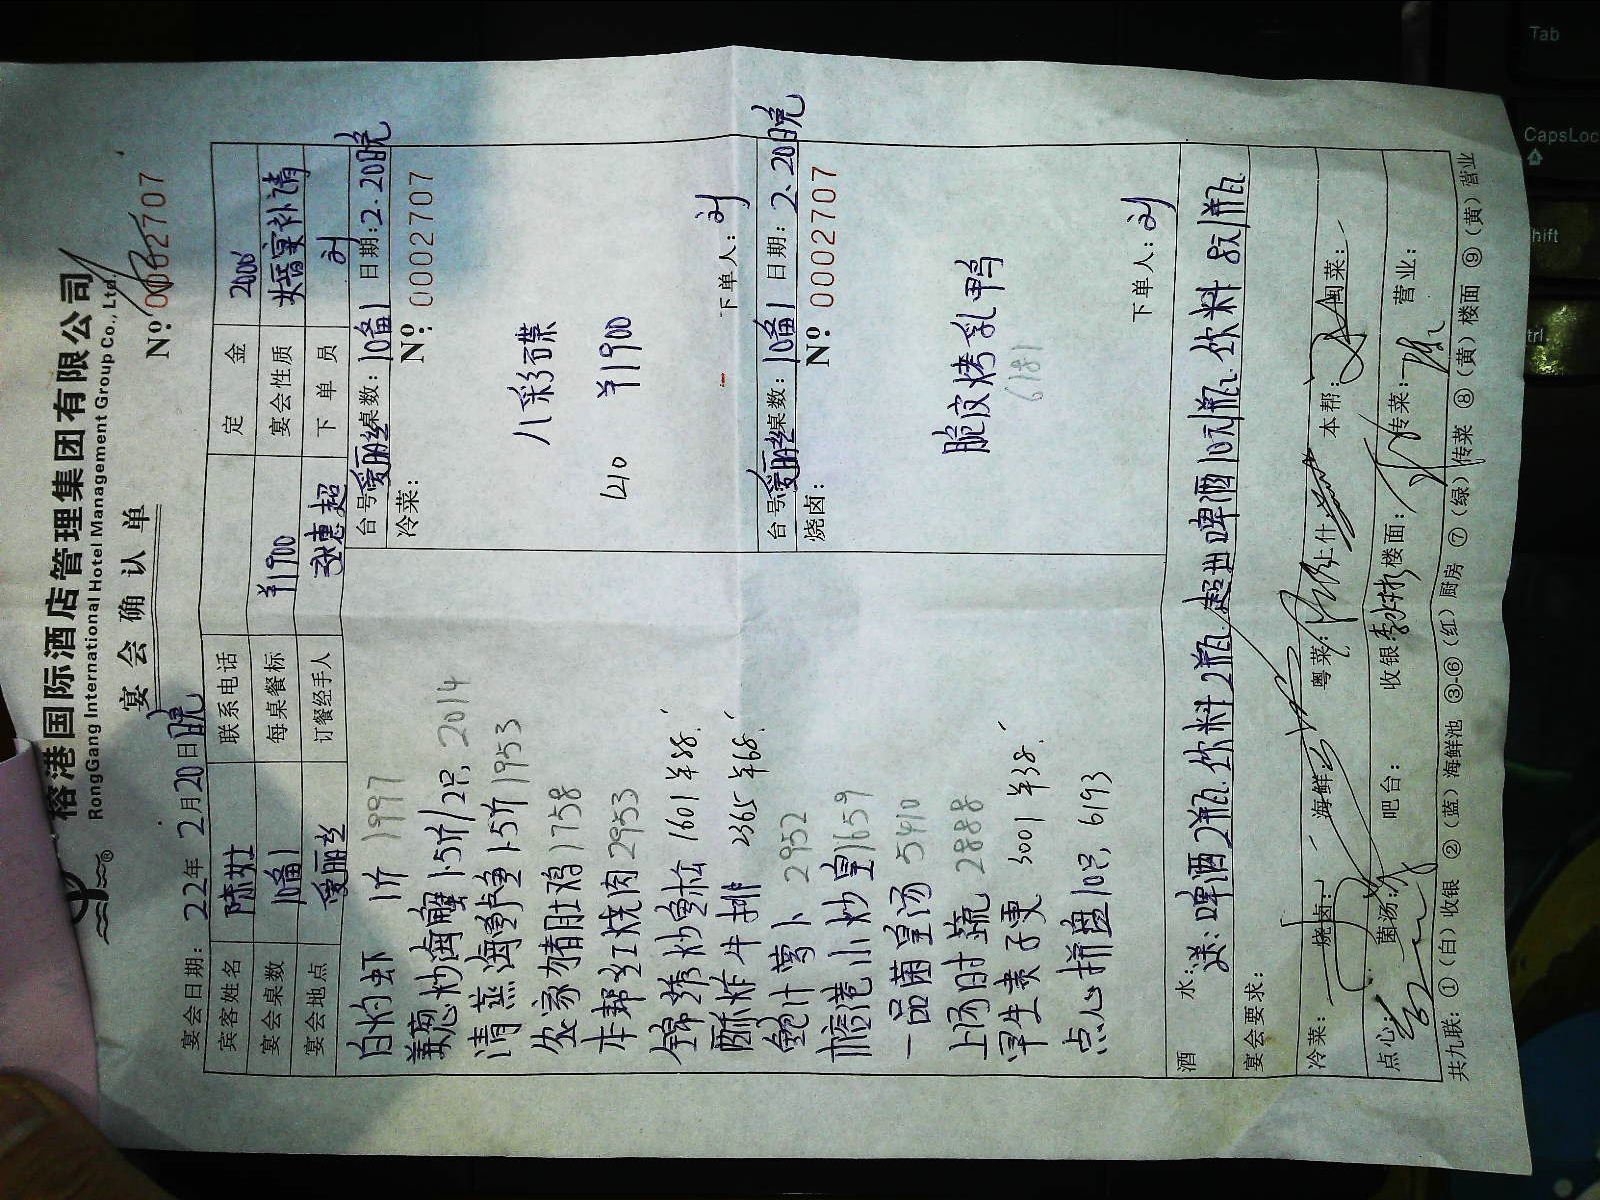 榕港国际酒店管理集团有限公司
RongGang International Hotel Management Group Co., Ltd
宴会确认单
№ 0002707
宴会日期: 22年 2月20日晚
宾客姓名 陈灶 联系电话 定金 2000
宴会桌数 10备1 每桌餐标 ¥1900 宴会性质 婚宴补请
宴会地点 爱丽丝 订餐经手人 张惠超 下单员 刘
白灼虾 1斤 1997
姜葱炒海蟹1.5斤/2只, 2014
清蒸海鲈鱼1.5斤1953
农家猪肚鸡1758
本帮红烧肉2953
锦绣炒鱼松 1601 ¥88.
酥炸牛排 2365 ¥68.
鲍汁萝卜 2952
榕港小炒皇1659
一品菌皇汤 5410
上汤时蔬 2888
5001 ¥38.
点心拼盘10只, 6193
台号爱丽丝桌数: 10备1 日期: 2.20晚
冷菜: № 0002707
八彩碟
1210 ¥1900
下单人: 刘
台号爱丽丝桌数: 10备1 日期: 2.20晚
烧卤: № 0002707
脆皮烤乳鸭
6181
下单人: 刘
酒水: 送: 啤酒2瓶.饮料2瓶.超出啤酒10元/瓶.饮料8元/瓶.
宴会要求:
冷菜: 烧卤: 海鲜: 粤菜: 上什: 本帮: 闽菜:
点心: 菌汤: 吧台: 收银: 楼面: 传菜: 营业:
共九联: ①(白)收银 ②(蓝)海鲜池 ③-⑥(红)厨房 ⑦(绿)传菜 ⑧(黄)楼面 ⑨(黄)营业
Tab
CapsLoc
hift
trl